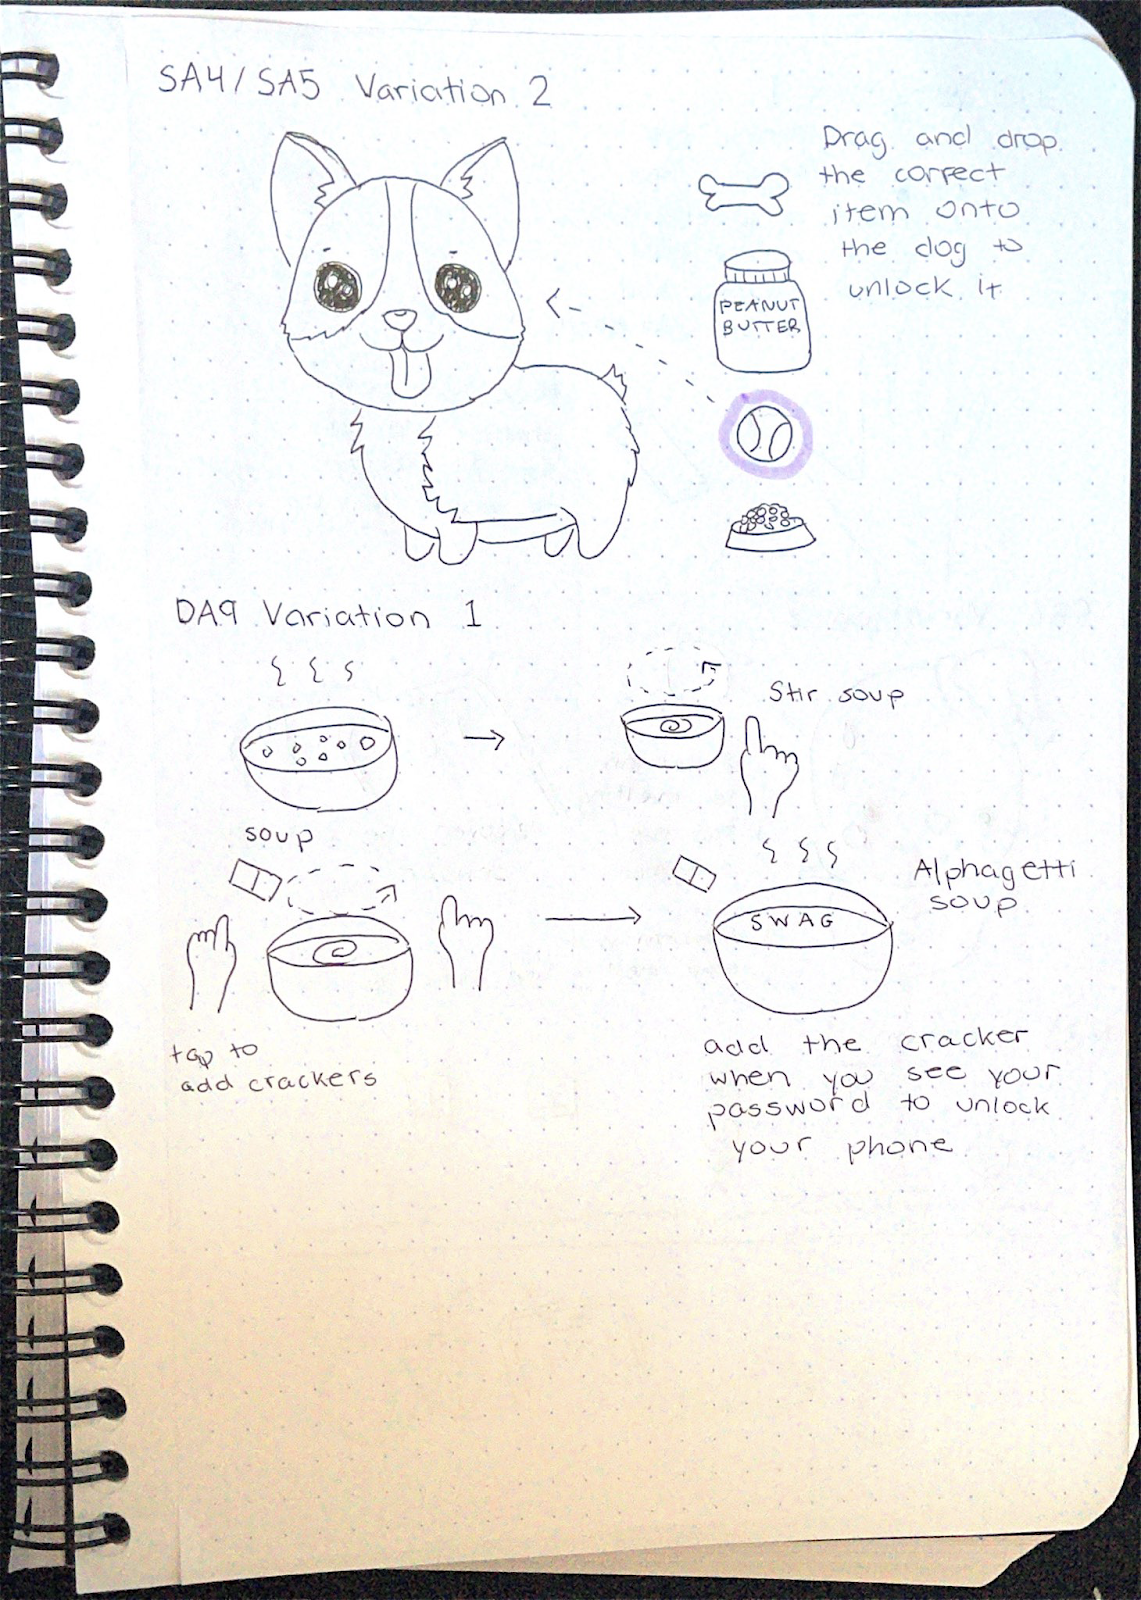 SA4/SA5 Variation 2
Drag and drop
the correct
item onto
the dog to
unlock it
PEANUT
BUTTER
DA9 Variation 1
Stir soup
soup
Alphagetti
soup
SWAG
tap to
add crackers
add the cracker
when you see your
password to unlock
your phone